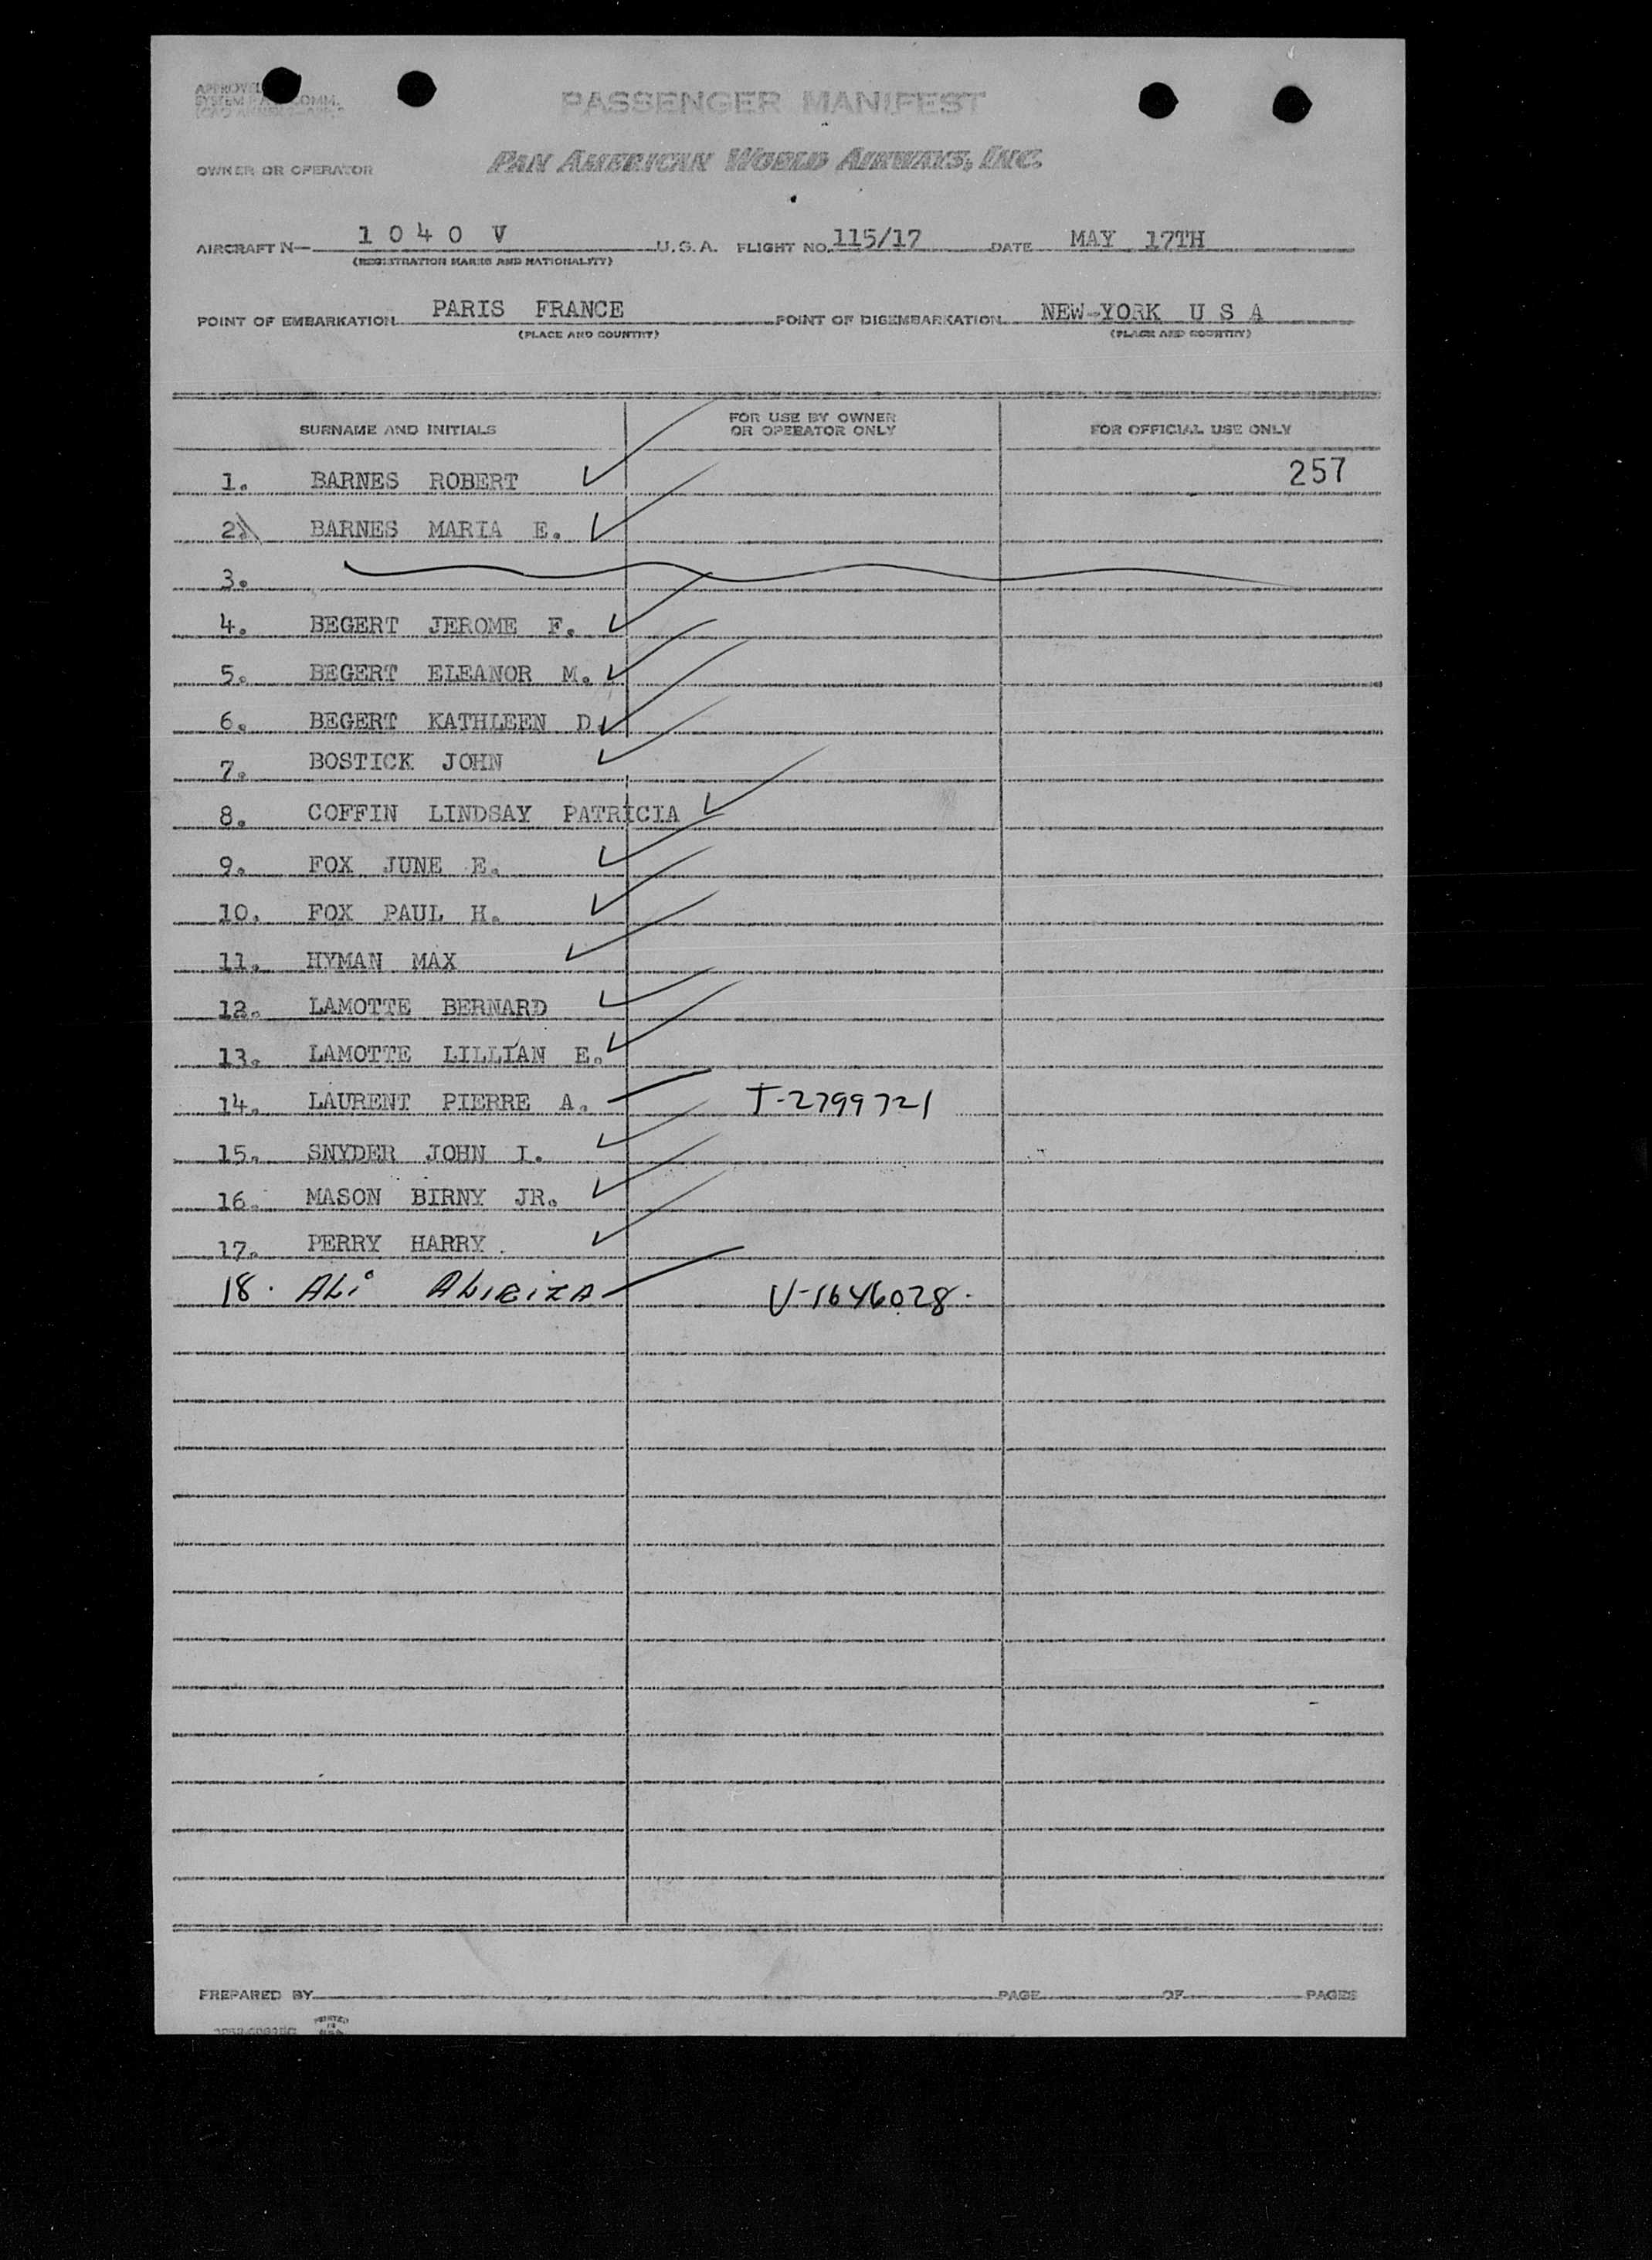 APPROVED
SYSTEM COMM.
PASSENGER MANIFEST
OWNER OR OPERATOR PAN AMERICAN WORLD AIRWAYS, INC.
AIRCRAFT N— 1 0 4 0 V U.S.A. FLIGHT NO. 115/17 DATE MAY 17TH
(REGISTRATION MARKS AND NATIONALITY)
POINT OF EMBARKATION PARIS FRANCE POINT OF DISEMBARKATION NEW-YORK U S A
(PLACE AND COUNTRY) (PLACE AND COUNTRY)
SURNAME AND INITIALS FOR USE BY OWNER OR OPERATOR ONLY FOR OFFICIAL USE ONLY
1. BARNES ROBERT 257
2. BARNES MARIA E.
3.
4. BEGERT JEROME F.
5. BEGERT ELEANOR M.
6. BEGERT KATHLEEN D.
7. BOSTICK JOHN
8. COFFIN LINDSAY PATRICIA
9. FOX JUNE E.
10. FOX PAUL H.
11. HYMAN MAX
12. LAMOTTE BERNARD
13. LAMOTTE LILLIAN E.
14. LAURENT PIERRE A. T-2799721
15. SNYDER JOHN I.
16. MASON BIRNY JR.
17. PERRY HARRY.
18. ALi V-1646028.
PREPARED BY PAGE OF PAGES
PRINTED
IN